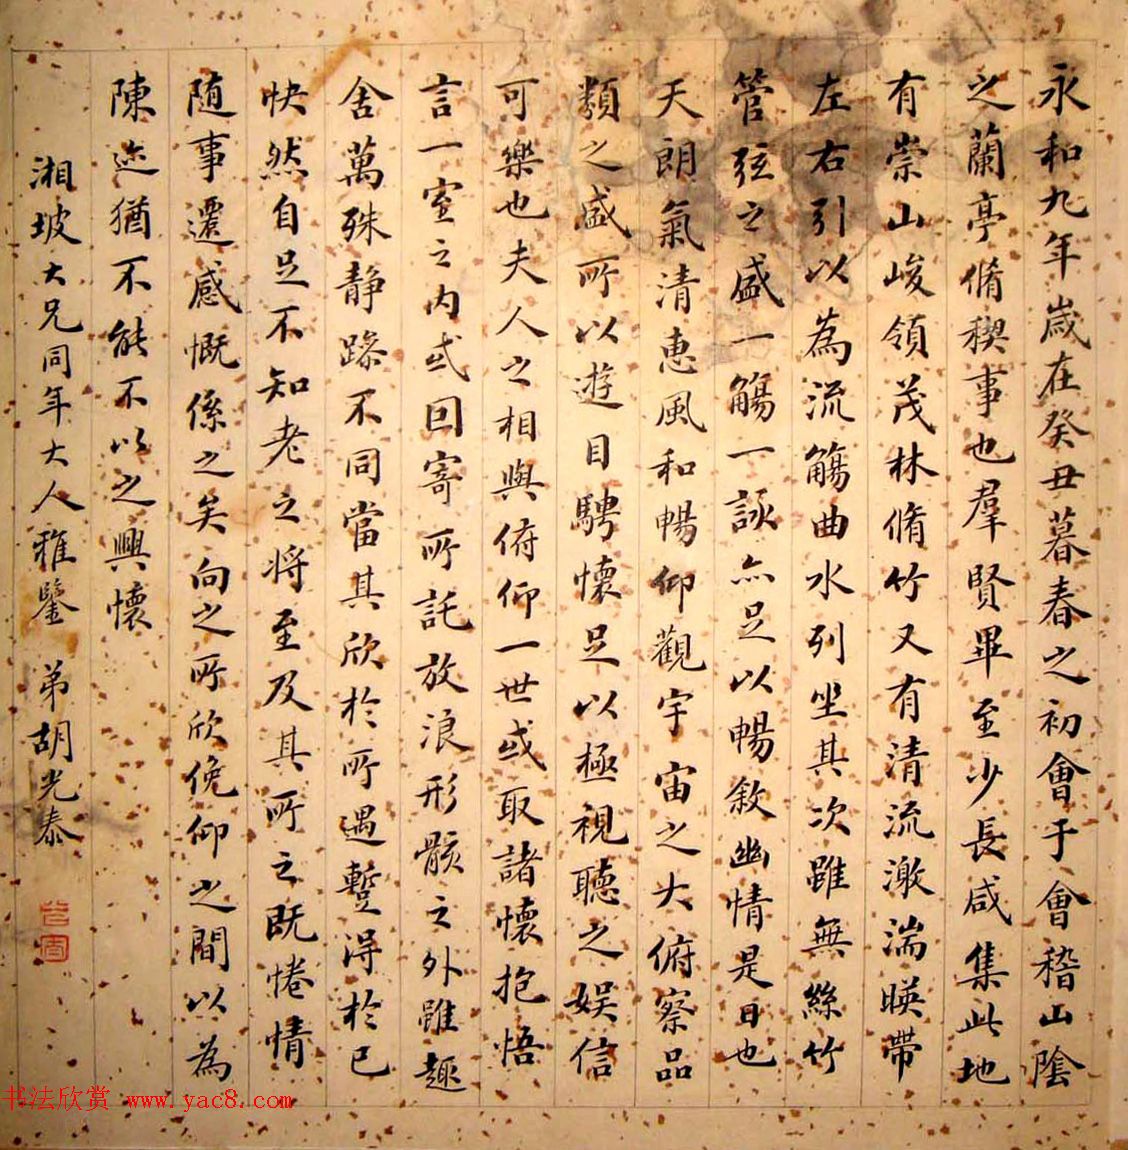 永和九年歲在癸丑暮春之初會于會稽山陰
之蘭亭脩稧事也羣賢畢至少長咸集此地
有崇山峻領茂林脩竹又有清流激湍暎帶
左右引以為流觴曲水列坐其次雖無絲竹
管弦之盛一觴一詠亦足以暢敘幽情是日也
天朗氣清惠風和暢仰觀宇宙之大俯察品
類之盛所以遊目騁懷足以極視聽之娱信
可樂也夫人之相與俯仰一世或取諸懷抱悟
言一室之內或回寄所託放浪形骸之外雖趣
舍萬殊静躁不同當其欣於所遇暫得於己
快然自足不知老之将至及其所之既惓情
随事遷感慨係之矣向之所欣俛仰之間以為
陳迹猶不能不以之興懷
湘坡大兄同年大人雅鑒 弟胡光泰
书法欣赏 www.yac8.com